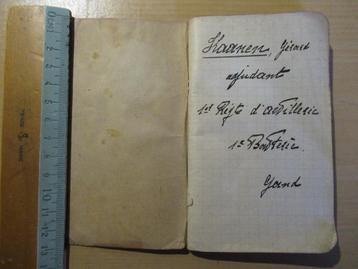 Haanen, Gérard
adjudant
1er Régt d'artillerie
1e Batterie
Gand